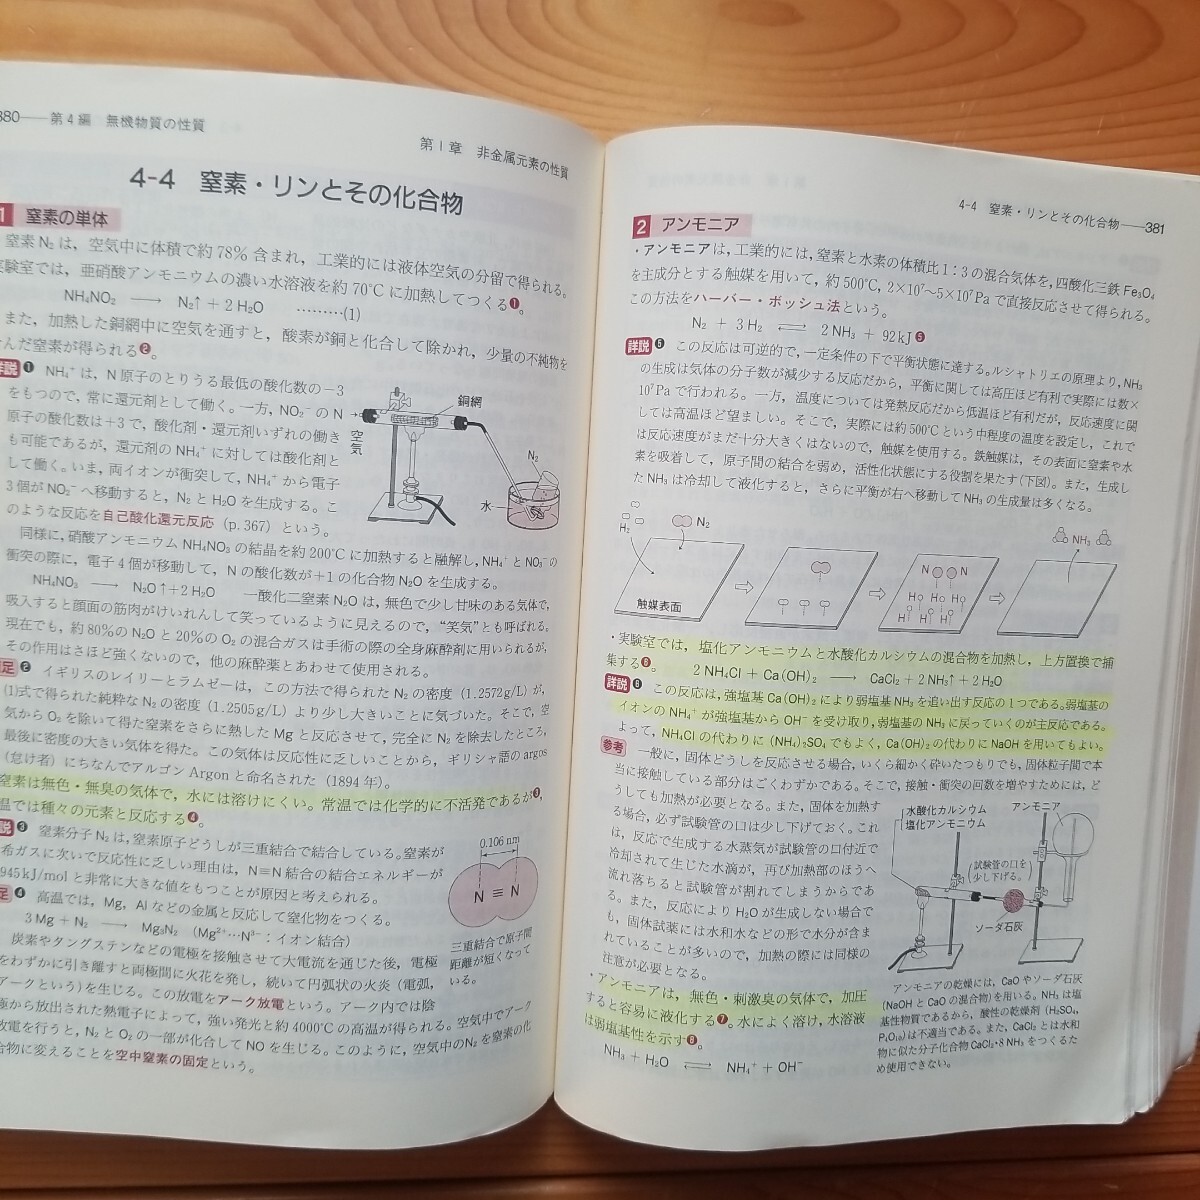 380——第4編 無機物質の性質
第1章 非金属元素の性質
4-4 窒素・リンとその化合物
1 窒素の単体
・窒素N₂は，空気中に体積で約78％含まれ，工業的には液体空気の分留で得られる。
実験室では，亜硝酸アンモニウムの濃い水溶液を約70℃に加熱してつくる❶。
NH₄NO₂ ⟶ N₂↑ + 2H₂O ………(1)
また，加熱した銅網中に空気を通すと，酸素が銅と化合して除かれ，少量の不純物を
含んだ窒素が得られる❷。
詳説❶ NH₄⁺は，N原子のとりうる最低の酸化数の－3
をもつので，常に還元剤として働く。一方，NO₂⁻のN
原子の酸化数は＋3で，酸化剤・還元剤いずれの働き
も可能であるが，還元剤のNH₄⁺に対しては酸化剤と
して働く。いま，両イオンが衝突して，NH₄⁺から電子
3個がNO₂⁻へ移動すると，N₂とH₂Oを生成する。こ
のような反応を自己酸化還元反応（p.367）という。
銅網
空気
N₂
水
同様に，硝酸アンモニウムNH₄NO₃の結晶を約200℃に加熱すると融解し，NH₄⁺とNO₃⁻の
衝突の際に，電子4個が移動して，Nの酸化数が＋1の化合物N₂Oを生成する。
NH₄NO₃ ⟶ N₂O↑+2H₂O 一酸化二窒素N₂Oは，無色で少し甘味のある気体で，
吸入すると顔面の筋肉がけいれんして笑っているように見えるので，“笑気”とも呼ばれる。
現在でも，約80％のN₂Oと20％のO₂の混合ガスは手術の際の全身麻酔剤に用いられるが，
その作用はさほど強くないので，他の麻酔薬とあわせて使用される。
補足❷ イギリスのレイリーとラムゼーは，この方法で得られたN₂の密度（1.2572g/L）が，
(1)式で得られた純粋なN₂の密度（1.2505g/L）より少し大きいことに気づいた。そこで，空
気からO₂を除いて得た窒素をさらに熱したMgと反応させて，完全にN₂を除去したところ，
最後に密度の大きい気体を得た。この気体は反応性に乏しいことから，ギリシャ語のargos
（怠け者）にちなんでアルゴンArgonと命名された（1894年）。
窒素は無色・無臭の気体で，水には溶けにくい。常温では化学的に不活発であるが❸，
温では種々の元素と反応する❹。
説❸ 窒素分子N₂は，窒素原子どうしが三重結合で結合している。窒素が
希ガスに次いで反応性に乏しい理由は，N≡N結合の結合エネルギーが
945kJ/molと非常に大きな値をもつことが原因と考えられる。
足❹ 高温では，Mg，Alなどの金属と反応して窒化物をつくる。
3Mg + N₂ ⟶ Mg₃N₂ （Mg²⁺…N³⁻：イオン結合）
0.106nm
N ≡ N
三重結合で原子間
距離が短くなって
いる。
炭素やタングステンなどの電極を接触させて大電流を通じた後，電極
をわずかに引き離すと両極間に火花を発し，続いて円弧状の火炎（電弧，
アークという）を生じる。この放電をアーク放電という。アーク内では陰
極から放出された熱電子によって，強い発光と約4000℃の高温が得られる。空気中でアーク
放電を行うと，N₂とO₂の一部が化合してNOを生じる。このように，空気中のN₂を窒素の化
合物に変えることを空中窒素の固定という。
4-4 窒素・リンとその化合物——381
2 アンモニア
・アンモニアは，工業的には，窒素と水素の体積比1：3の混合気体を，四酸化三鉄Fe₃O₄
を主成分とする触媒を用いて，約500℃，2×10⁷～5×10⁷Paで直接反応させて得られる。
この方法をハーバー・ボッシュ法という。
N₂ + 3H₂ ⇄ 2NH₃ + 92kJ❺
詳説❺ この反応は可逆的で，一定条件の下で平衡状態に達する。ルシャトリエの原理より，NH₃
の生成は気体の分子数が減少する反応だから，平衡に関しては高圧ほど有利で実際には数×
10⁷Paで行われる。一方，温度については発熱反応だから低温ほど有利だが，反応速度に関
しては高温ほど望ましい。そこで，実際には約500℃という中程度の温度を設定し，これで
は反応速度がまだ十分大きくはないので，触媒を使用する。鉄触媒は，その表面に窒素や水
素を吸着して，原子間の結合を弱め，活性化状態にする役割を果たす（下図）。また，生成し
たNH₃は冷却して液化すると，さらに平衡が右へ移動してNH₃の生成量は多くなる。
H₂
N₂
触媒表面
N N
H H H
H H H
NH₃
・実験室では，塩化アンモニウムと水酸化カルシウムの混合物を加熱し，上方置換で捕
集する❻。 2NH₄Cl + Ca(OH)₂ ⟶ CaCl₂ + 2NH₃↑ + 2H₂O
詳説❻ この反応は，強塩基Ca(OH)₂により弱塩基NH₃を追い出す反応の1つである。弱塩基の
イオンのNH₄⁺が強塩基からOH⁻を受け取り，弱塩基のNH₃に戻っていくのが主反応である。
よって，NH₄Clの代わりに(NH₄)₂SO₄でもよく，Ca(OH)₂の代わりにNaOHを用いてもよい。
参考 一般に，固体どうしを反応させる場合，いくら細かく砕いたつもりでも，固体粒子間で本
当に接触している部分はごくわずかである。そこで，接触・衝突の回数を増やすためには，ど
うしても加熱が必要となる。また，固体を加熱す
る場合，必ず試験管の口は少し下げておく。これ
は，反応で生成する水蒸気が試験管の口付近で
冷却されて生じた水滴が，再び加熱部のほうへ
流れ落ちると試験管が割れてしまうからであ
る。また，反応によりH₂Oが生成しない場合で
も，固体試薬には水和水などの形で水分が含ま
れていることが多いので，加熱の際には同様の
注意が必要となる。
水酸化カルシウム
塩化アンモニウム
アンモニア
（試験管の口を
少し下げる。）
ソーダ石灰
・アンモニアは，無色・刺激臭の気体で，加圧
すると容易に液化する❼。水によく溶け，水溶液
は弱塩基性を示す❽。
NH₃ + H₂O ⇄ NH₄⁺ + OH⁻
アンモニアの乾燥には，CaOやソーダ石灰
（NaOHとCaOの混合物）を用いる。NH₃は塩
基性物質であるから，酸性の乾燥剤（H₂SO₄，
P₄O₁₀）は不適当である。また，CaCl₂とは水和
物に似た分子化合物CaCl₂・8NH₃をつくるた
め使用できない。